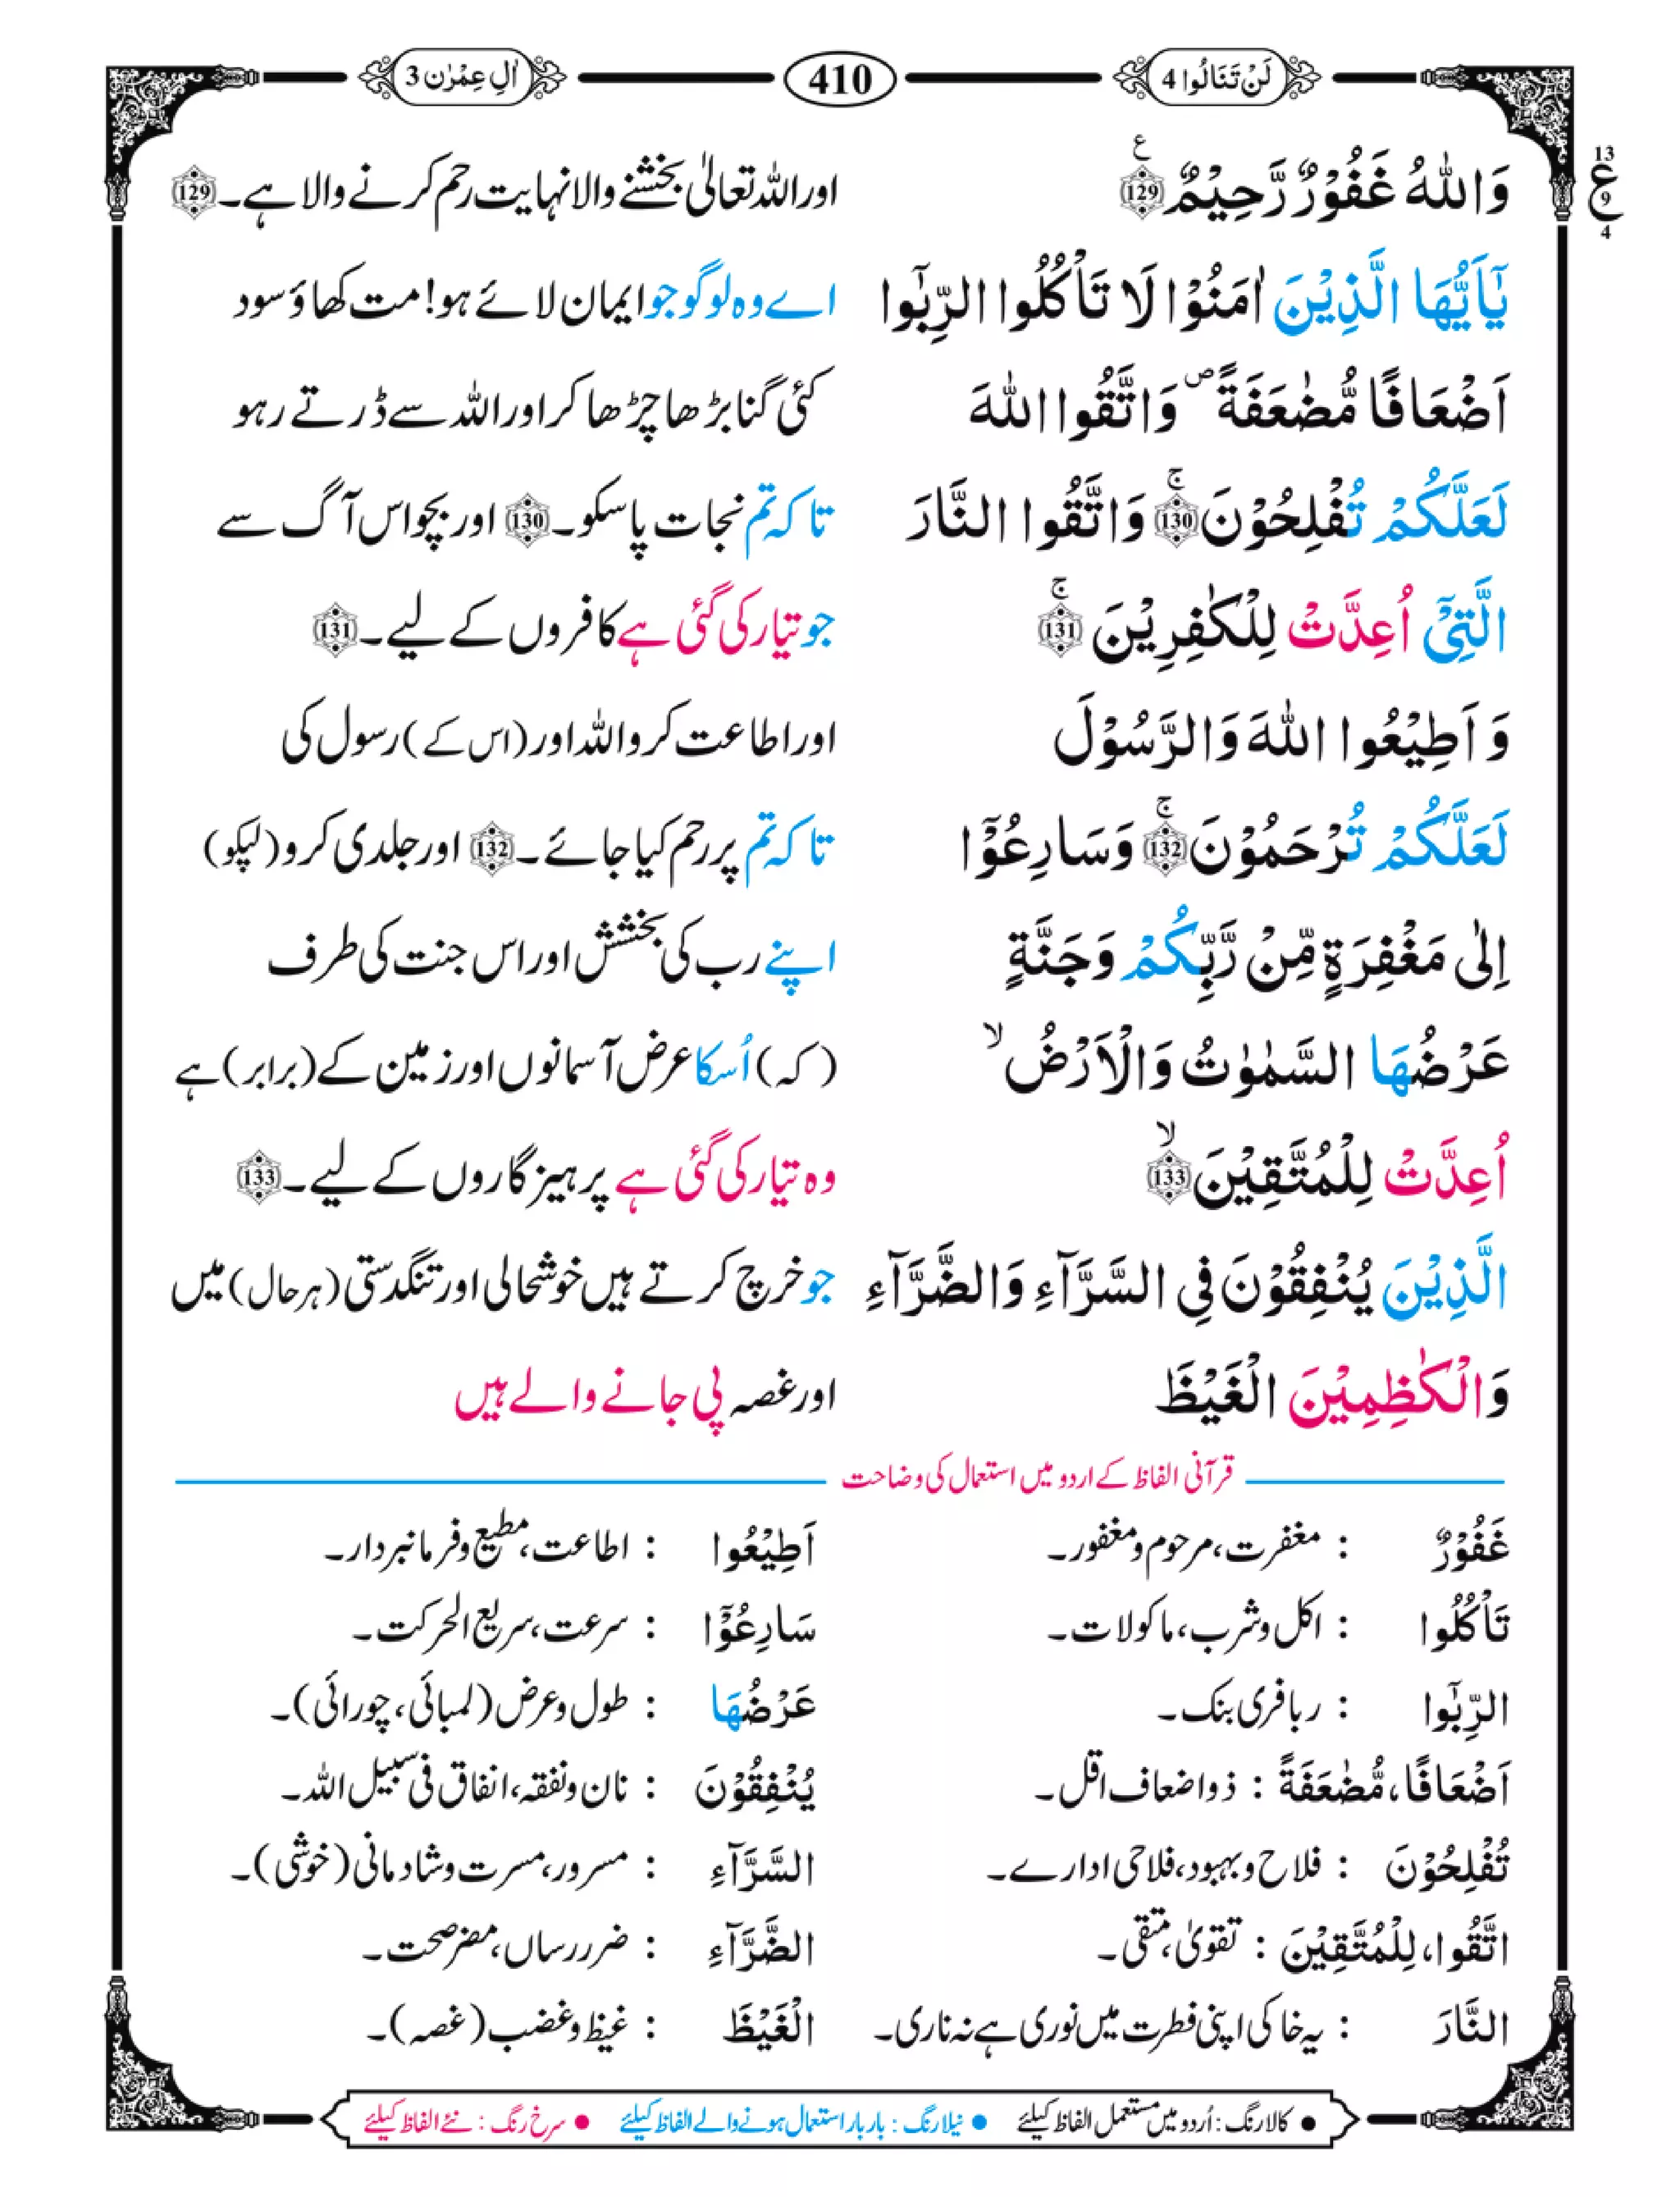 لَنْ تَنَالُوا 4
410
اٰلِ عِمْرٰن 3
13
ع
9
4
وَاللّٰهُ غَفُوْرٌ رَّحِيْمٌ ﴿129﴾ ع
اور اللہ تعالیٰ بخشنے والا نہایت رحم کرنے والا ہے۔ ﴿129﴾
يٰٓاَيُّهَا الَّذِيْنَ اٰمَنُوْا لَا تَاْكُلُوا الرِّبٰٓوا
اے وہ لوگو جو ایمان لائے ہو! مت کھاؤ سود
اَضْعَافًا مُّضٰعَفَةً ۪ وَاتَّقُوا اللّٰهَ
کئی گنا بڑھا چڑھا کر اور اللہ سے ڈرتے رہو
لَعَلَّكُمْ تُفْلِحُوْنَ ﴿130﴾ۚ وَاتَّقُوا النَّارَ
تاکہ تم نجات پا سکو۔ ﴿130﴾ اور بچو اس آگ سے
الَّتِيْٓ اُعِدَّتْ لِلْكٰفِرِيْنَ ﴿131﴾ۚ
جو تیار کی گئی ہے کافروں کے لیے۔ ﴿131﴾
وَ اَطِيْعُوا اللّٰهَ وَالرَّسُوْلَ
اور اطاعت کرو اللہ اور (اس کے) رسول کی
لَعَلَّكُمْ تُرْحَمُوْنَ ﴿132﴾ۚ وَسَارِعُوْٓا
تاکہ تم پر رحم کیا جائے۔ ﴿132﴾ اور جلدی کرو (لپکو)
اِلٰى مَغْفِرَةٍ مِّنْ رَّبِّكُمْ وَجَنَّةٍ
اپنے رب کی بخشش اور اس جنت کی طرف
عَرْضُهَا السَّمٰوٰتُ وَالْاَرْضُ ۙ
(کہ) اُسکا عرض آسمانوں اور زمین کے (برابر) ہے
اُعِدَّتْ لِلْمُتَّقِيْنَ ﴿133﴾ۙ
وہ تیار کی گئی ہے پرہیز گاروں کے لیے۔ ﴿133﴾
الَّذِيْنَ يُنْفِقُوْنَ فِي السَّرَّآءِ وَالضَّرَّآءِ
جو خرچ کرتے ہیں خوشحالی اور تنگدستی (ہر حال) میں
وَالْكٰظِمِيْنَ الْغَيْظَ
اور غصہ پی جانے والے ہیں
قرآنی الفاظ کے اردو میں استعمال کی وضاحت
غَفُوْرٌ : مغفرت، مرحوم و مغفور۔
اَطِيْعُوا : اطاعت، مطیع و فرمانبردار۔
تَاْكُلُوا : اکل و شرب، ماکولات۔
سَارِعُوْٓا : سرعت، سریع الحرکت۔
الرِّبٰٓوا : ربا فری بنک۔
عَرْضُهَا : طول و عرض (لمبائی، چورائی)۔
اَضْعَافًا، مُّضٰعَفَةً : ذو اضعاف اقل۔
يُنْفِقُوْنَ : نان و نفقہ، انفاق فی سبیل اللہ۔
تُفْلِحُوْنَ : فلاح و بہبود، فلاحی ادارے۔
السَّرَّآءِ : مسرور، مسرت و شادمانی (خوشی)۔
اتَّقُوا، لِلْمُتَّقِيْنَ : تقویٰ، متقی۔
الضَّرَّآءِ : ضرر رساں، مضر صحت۔
النَّارَ : یہ خاکی اپنی فطرت میں نوری ہے نہ ناری۔
الْغَيْظَ : غیظ و غضب (غصہ)۔
● کالا رنگ: اُردو میں مستعمل الفاظ کیلئے ● نیلا رنگ: بار بار استعمال ہونے والے الفاظ کیلئے ● سرخ رنگ: نئے الفاظ کیلئے